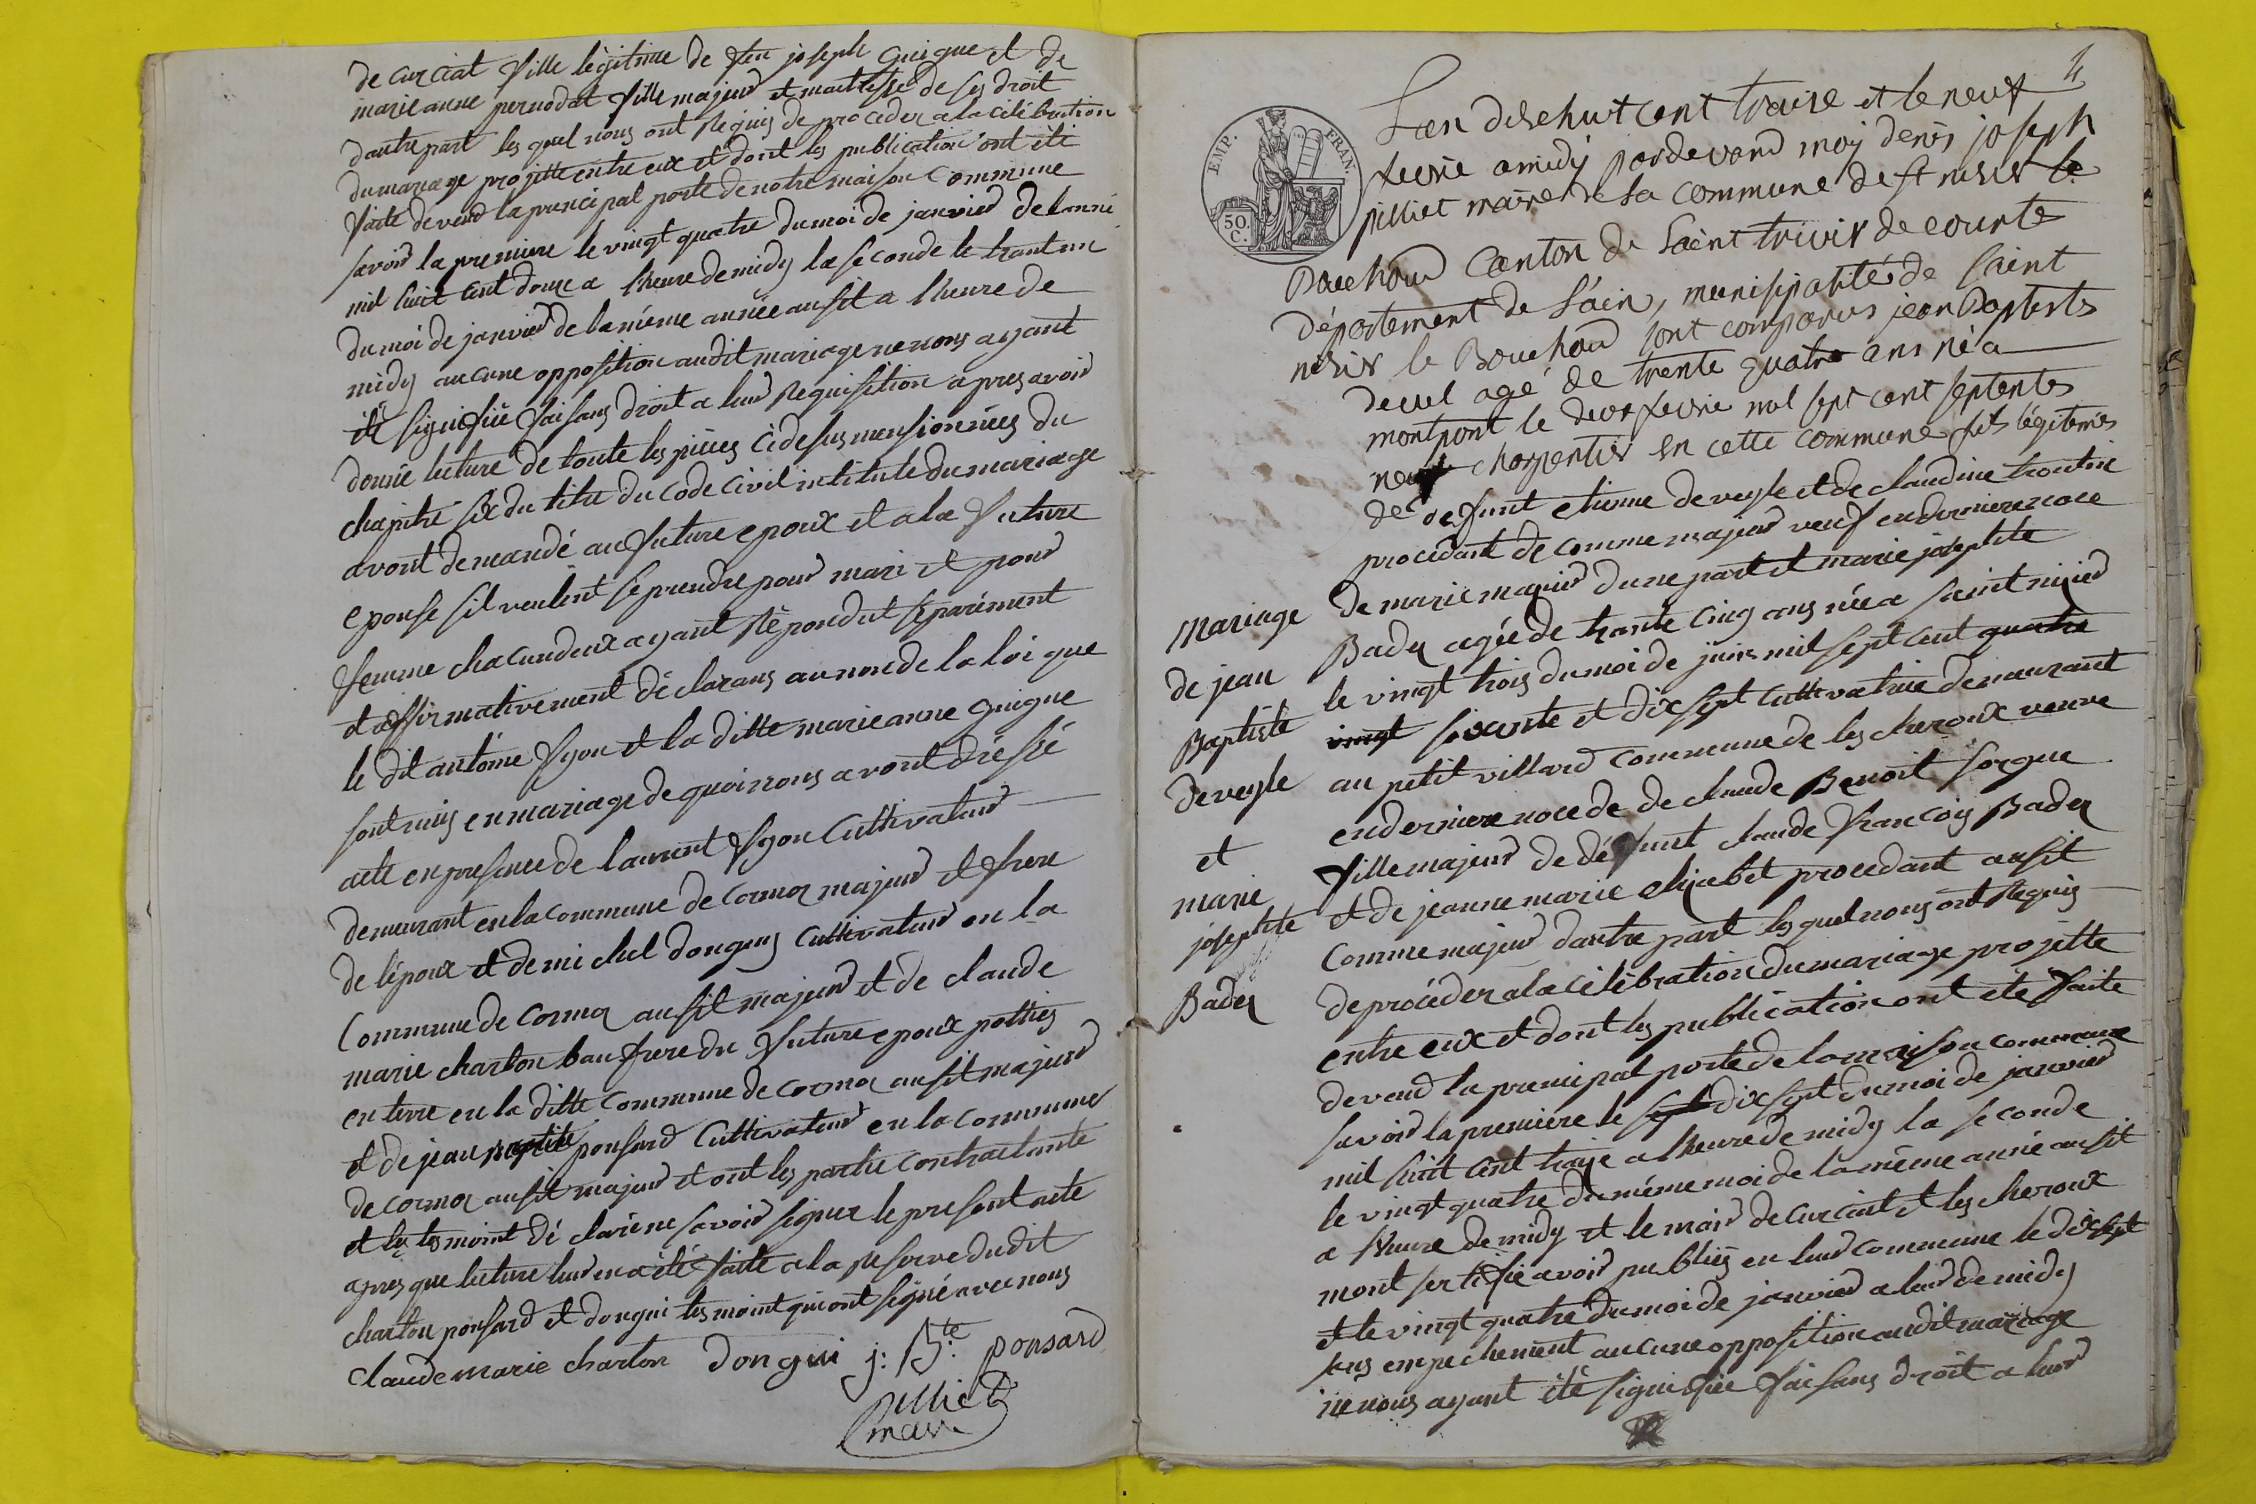 de curciat fille légitime de feu joseph guigue et de
marie anne pernodat fille majeur et maitresse de ses droit
dautre part les quel nous ont requis de proceder a la célébration
du mariage projetté entre eux et dont les publication ont été
faite devend la principal porte de notre maison commune
savoir la premiere le vingt quatre du moi de janvier de lanné
mil huit cent douze a lheure de midy la seconde le trant un
du moi de janvier de la même année ausit a lheure de
midy aucune opposition audit mariage ne nous ayant
été signifiée faisans droit a leur requisition apres avoir
donné lecture de toute les pièces cidesus mensionnées du
chapitre six du titre du code civil intitule du mariage
avont demandé au future epoux et a la future
epouse sil veulent se prendre pour mari et pour
femme chacun deux ayant répondut séparément
et affirmativement déclarans au nom de la loi que
le dit antoine fyon et la ditte marie anne guigue
sont unis en mariage de quoi nous avont dressé
acte en presence de laurent fyon cultivateur
demeurant en la commune de cormoz majeur et frere
de lépoux et de michel donguy cultivateur en la
commune de cormoz ausit majeur et de claude
marie charton baufrere du future epoux pottier
en terre en la ditte commune de cormoz ausit majeur
et de jean baptiste ponsard cultivateur en la commune
de cormoz ausit majeur et ont les partie contractante
et les tesmoint déclaré ne savoir signer le present acte
apres que lecture leur en a été faite a la reserve dudit
charton ponsard et dongui tesmoint qui ont signé avec nous
claude marie charton dongui j: Bte: ponsard
pilliet
maire
4
EMP. FRAN.
50.
C.
Lan dixe huit cent treize et le neuf
fevrié a midy pardevand moy denis joseph
pilliet maire de la commune de st nisier le
Bouchoud canton de Saint trivier de courtes
département de l'ain, munisipalité de saint
nisier le Bouchoud sont comparus jean Baptiste
devel agé de trente quatre ans né a
montpont le deux fevrié mil sept cent septente
neuf charpentier en cette commune fils légitemes
de defunt etienne deveyle et de claudine troutié
procedant de comme majeur veuf en derniere noce
de marie magnin dune part et marie josephte
Badez agée de trante cinq ans née a saint nizier
le vingt trois du moi de juin mil sept cent quatre
vingt soixante et dix sept cultivatrice demeurant
au petit villard commune de les cheroux veuve
en derniere noce de de claude Benoit sorgue
fille majeur de défunt claude francois Badez
et de jeanne marie elizabet procedant ausit
comme majeur dautre part les quel nous ont requis
de procéder a la célébration du mariage projetté
entre eux et dont les publication ont été faite
devend la principal porte de la maison commune
savoir la premiere le sept dix sept du moi de janvier
mil huit cent traize a lheure de midy la seconde
le vingt quatre du même moi de la même année ausit
a lheure de midy et le maire de curciat et les cheroux
mont sertifié avoir publiés en leur commune le dix sept
et le vingt quatre du moi de janvier a leur de midy
sans empechement aucune opposition audit mariage
ne nous ayant été signifiée faisans droit a leur
mariage
de jean
Baptiste
deveyle
et
marie
josephte
Badez